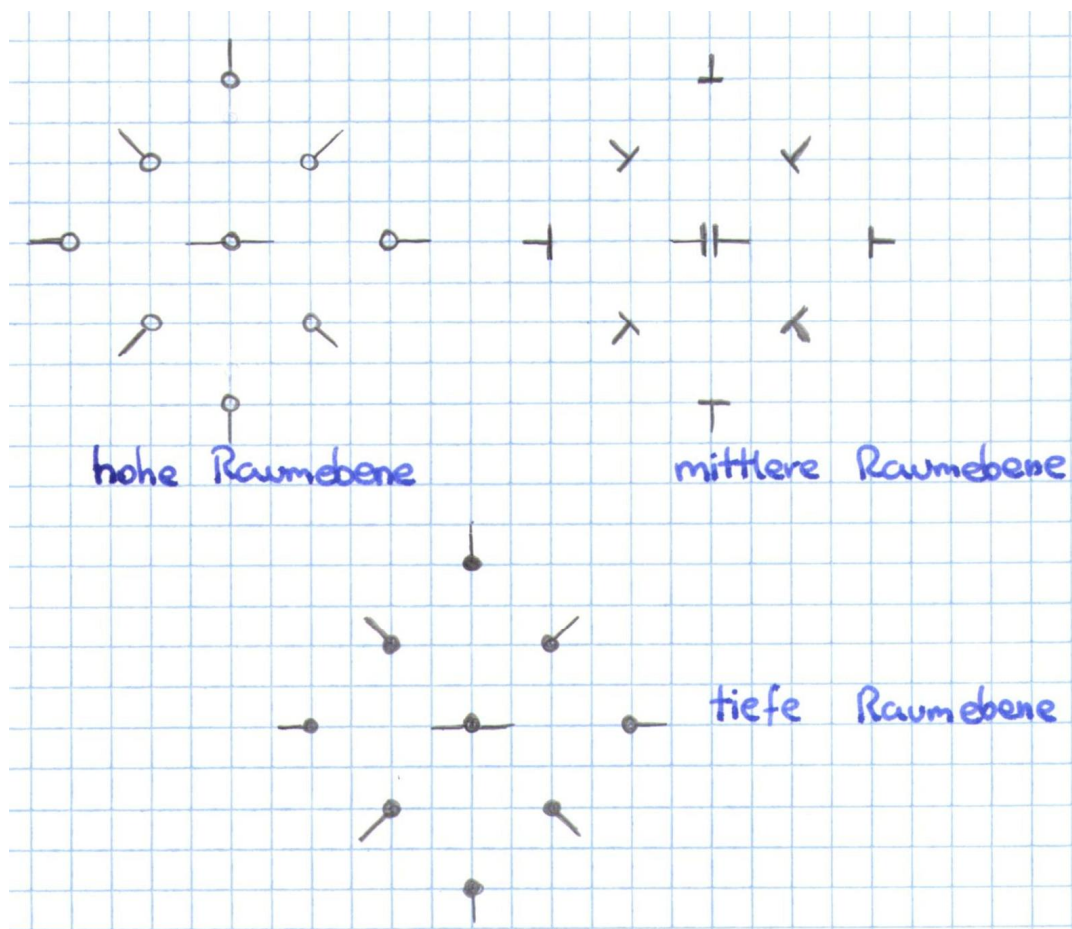 hohe Raumebene
mittlere Raumebene
tiefe Raumebene